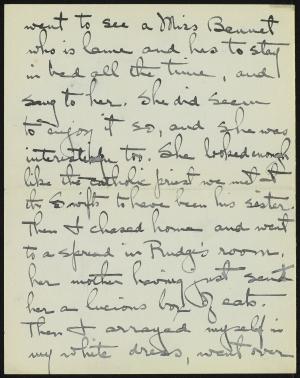 went to see a Miss Bennet
who is lame and has to stay
in bed all the time, and
sang to her. She did seem
to enjoy it so, and she was
interesting too. She looked enough
like the catholic priest we met at
the Swifts to have been his sister.
Then I chased home and went
to a spread in Rudge's room,
her mother having just sent
her a lucious box of eats.
Then I arrayed myself in
my white dress, went over